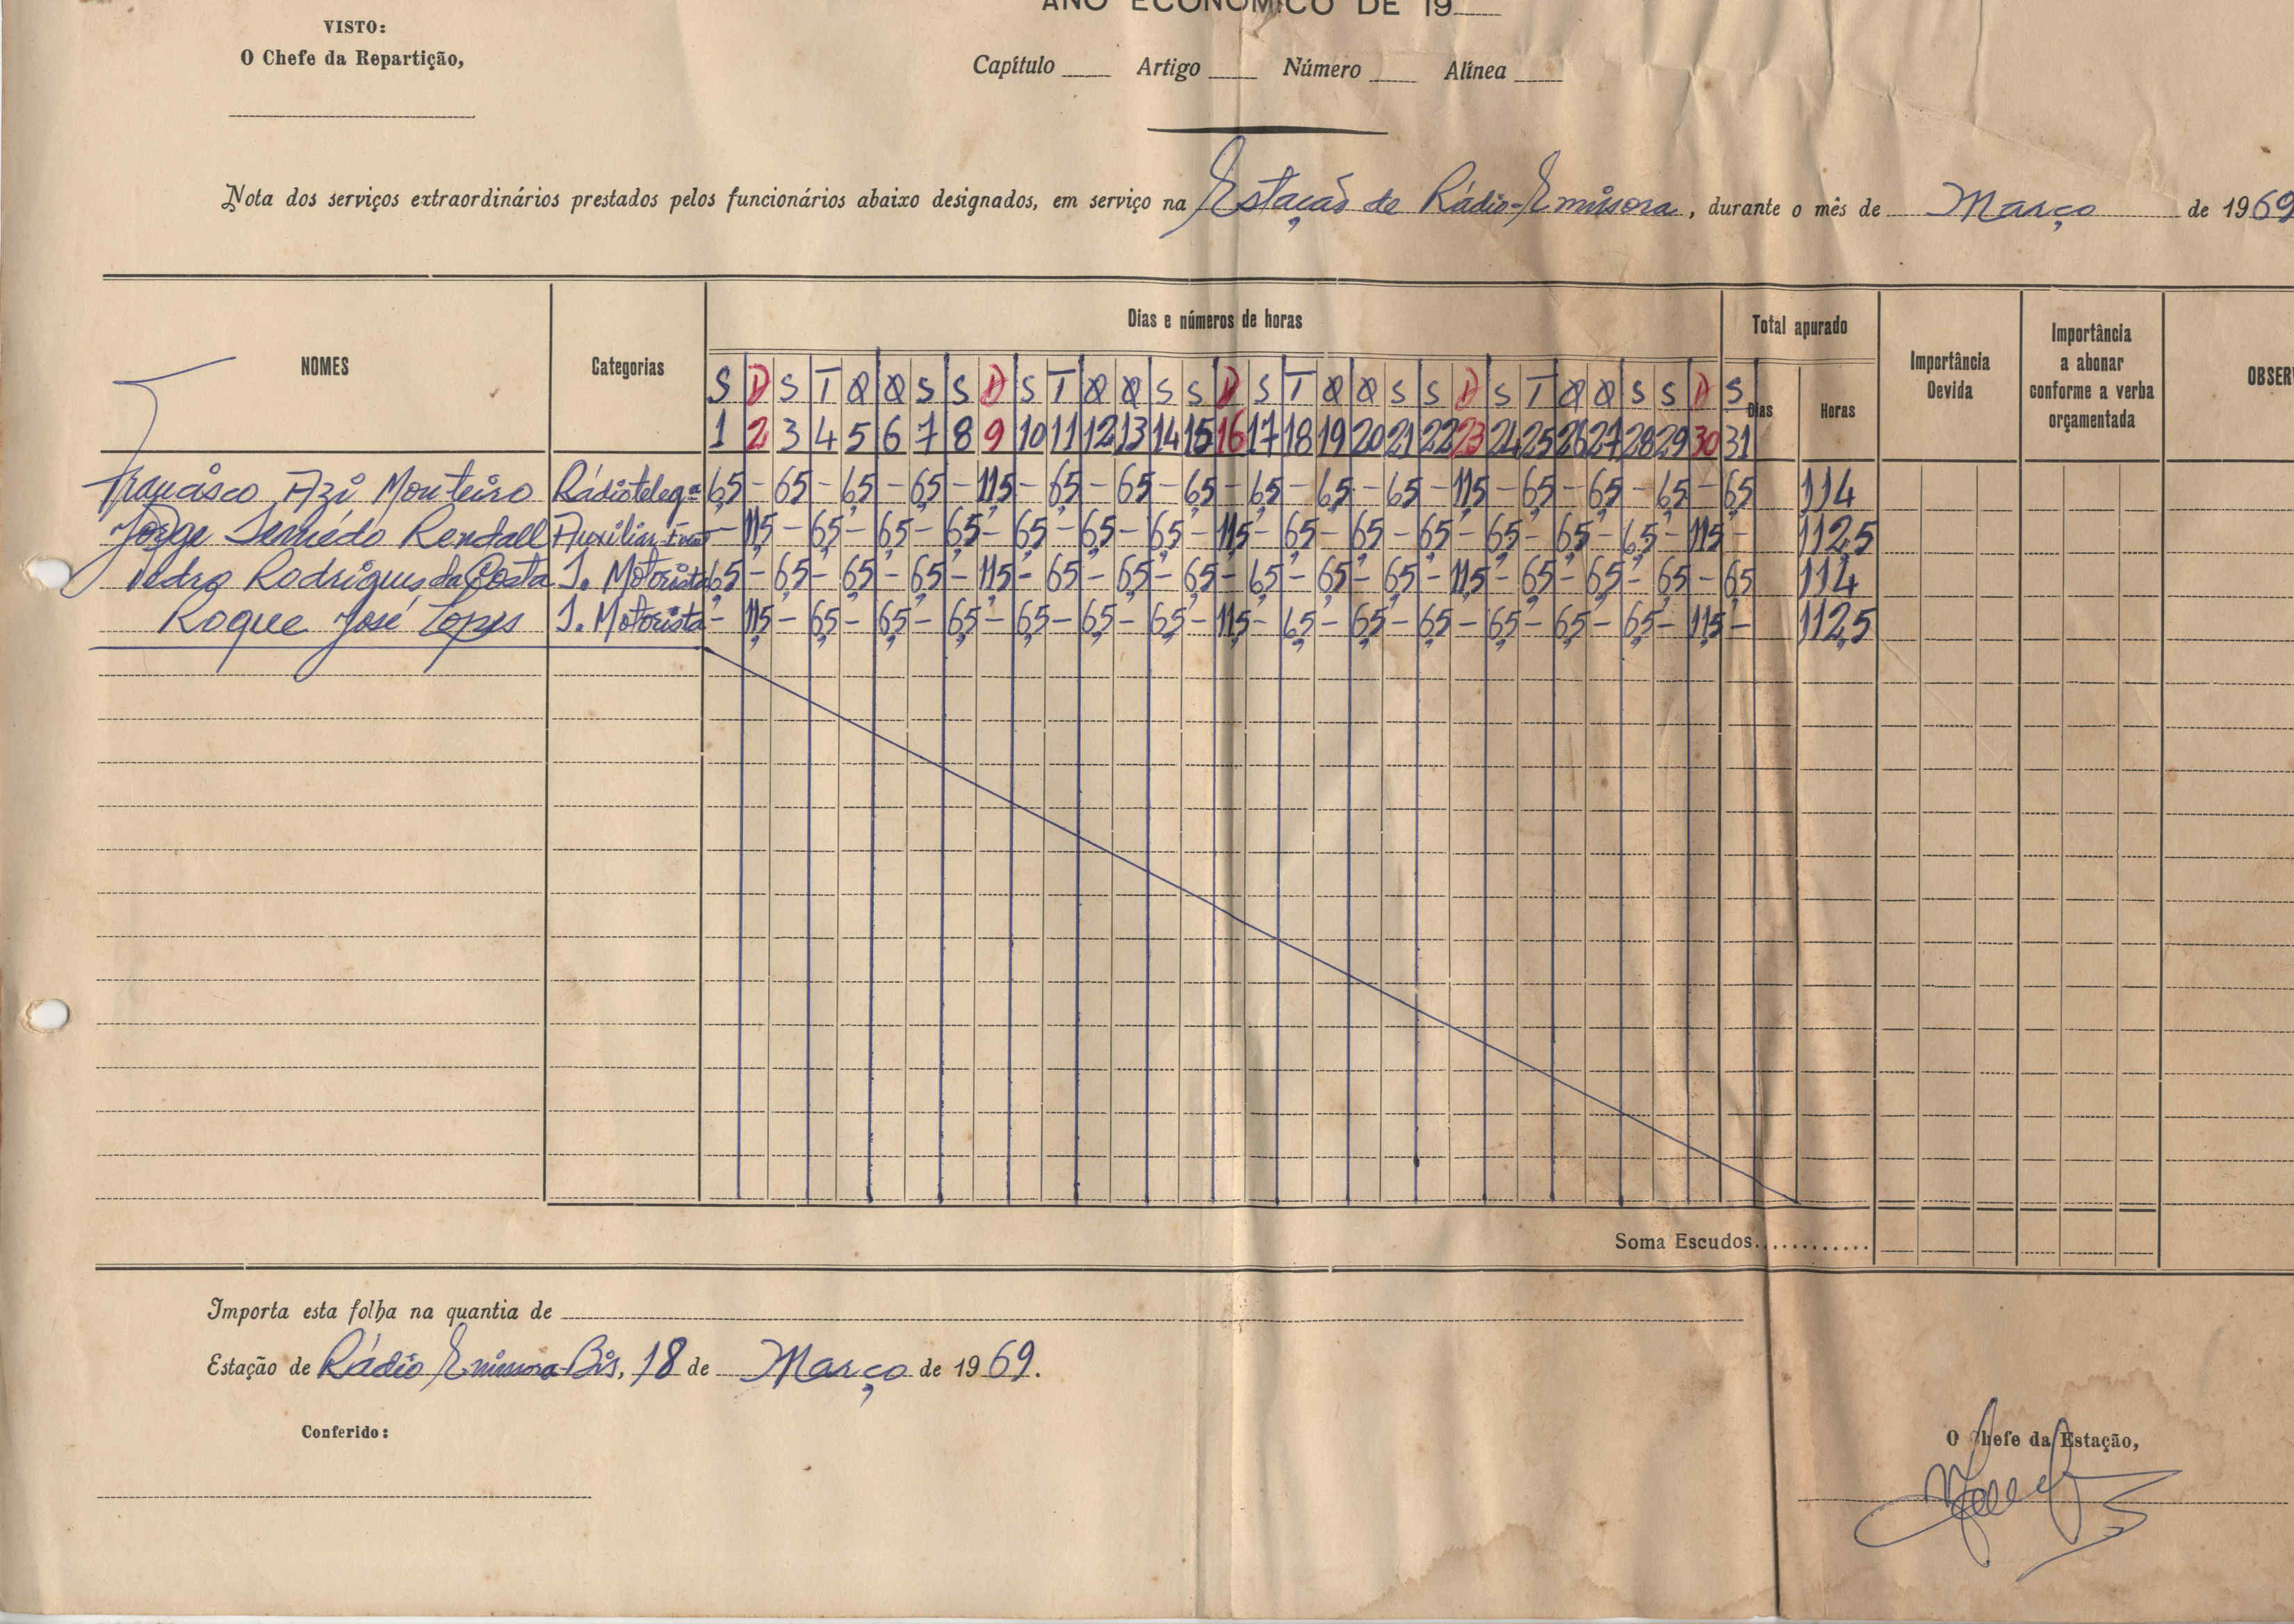 ANO ECONÓMICO DE 19
VISTO:
O Chefe da Repartição,
Capítulo ____ Artigo ____ Número ____ Alínea ____
Nota dos serviços extraordinários prestados pelos funcionários abaixo designados, em serviço na Estação de Rádio-Emissora, durante o mês de Março de 1969
NOMES Categorias Dias e números de horas Total apurado Importância Devida Importância a abonar conforme a verba orçamentada OBSER
S D S T Q Q S S D S T Q Q S S D S T Q Q S S D S T Q Q S S D S Dias Horas
1 2 3 4 5 6 7 8 9 10 11 12 13 14 15 16 17 18 19 20 21 22 23 24 25 26 27 28 29 30 31
Francisco Azi Monteiro Rádioteleg.ª 6,5 - 6,5 - 6,5 - 6,5 - 11,5 - 6,5 - 6,5 - 6,5 - 6,5 - 6,5 - 6,5 - 11,5 - 6,5 - 6,5 - 6,5 - 6,5 114
Jorge Semedo Rendall Auxiliar - 11,5 - 6,5 - 6,5 - 6,5 - 6,5 - 6,5 - 6,5 - 11,5 - 6,5 - 6,5 - 6,5 - 6,5 - 6,5 - 6,5 - 11,5 - 112,5
Pedro Rodrigues da Costa J. Motorista 6,5 - 6,5 - 6,5 - 6,5 - 11,5 - 6,5 - 6,5 - 6,5 - 6,5 - 6,5 - 6,5 - 11,5 - 6,5 - 6,5 - 6,5 - 6,5 114
Roque José Lopes J. Motorista - 11,5 - 6,5 - 6,5 - 6,5 - 6,5 - 6,5 - 6,5 - 11,5 - 6,5 - 6,5 - 6,5 - 6,5 - 6,5 - 6,5 - 11,5 - 112,5
Soma Escudos............
Importa esta folha na quantia de
Estação de Rádio Emissora-Bis, 18 de Março de 1969.
Conferido:
O Chefe da Estação,